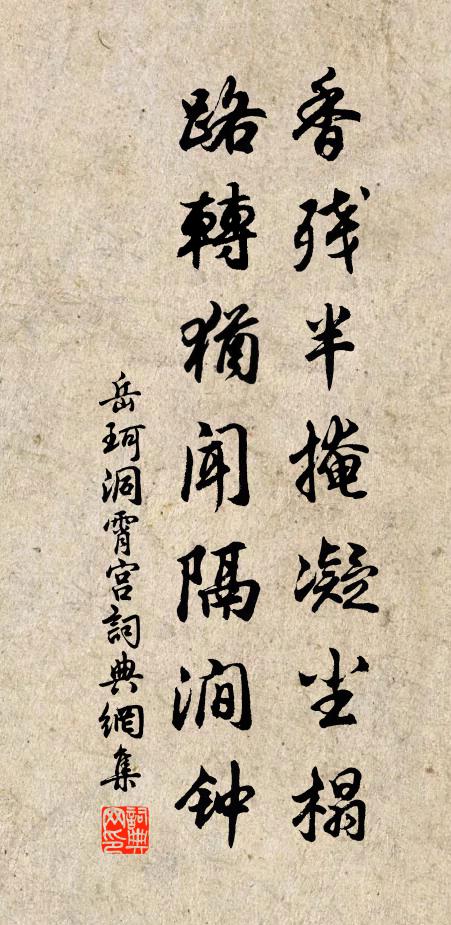 香残半掩凝尘榻
路轉猶闻隔涧钟
岳珂洞霄宫詞典網集
詞典网印